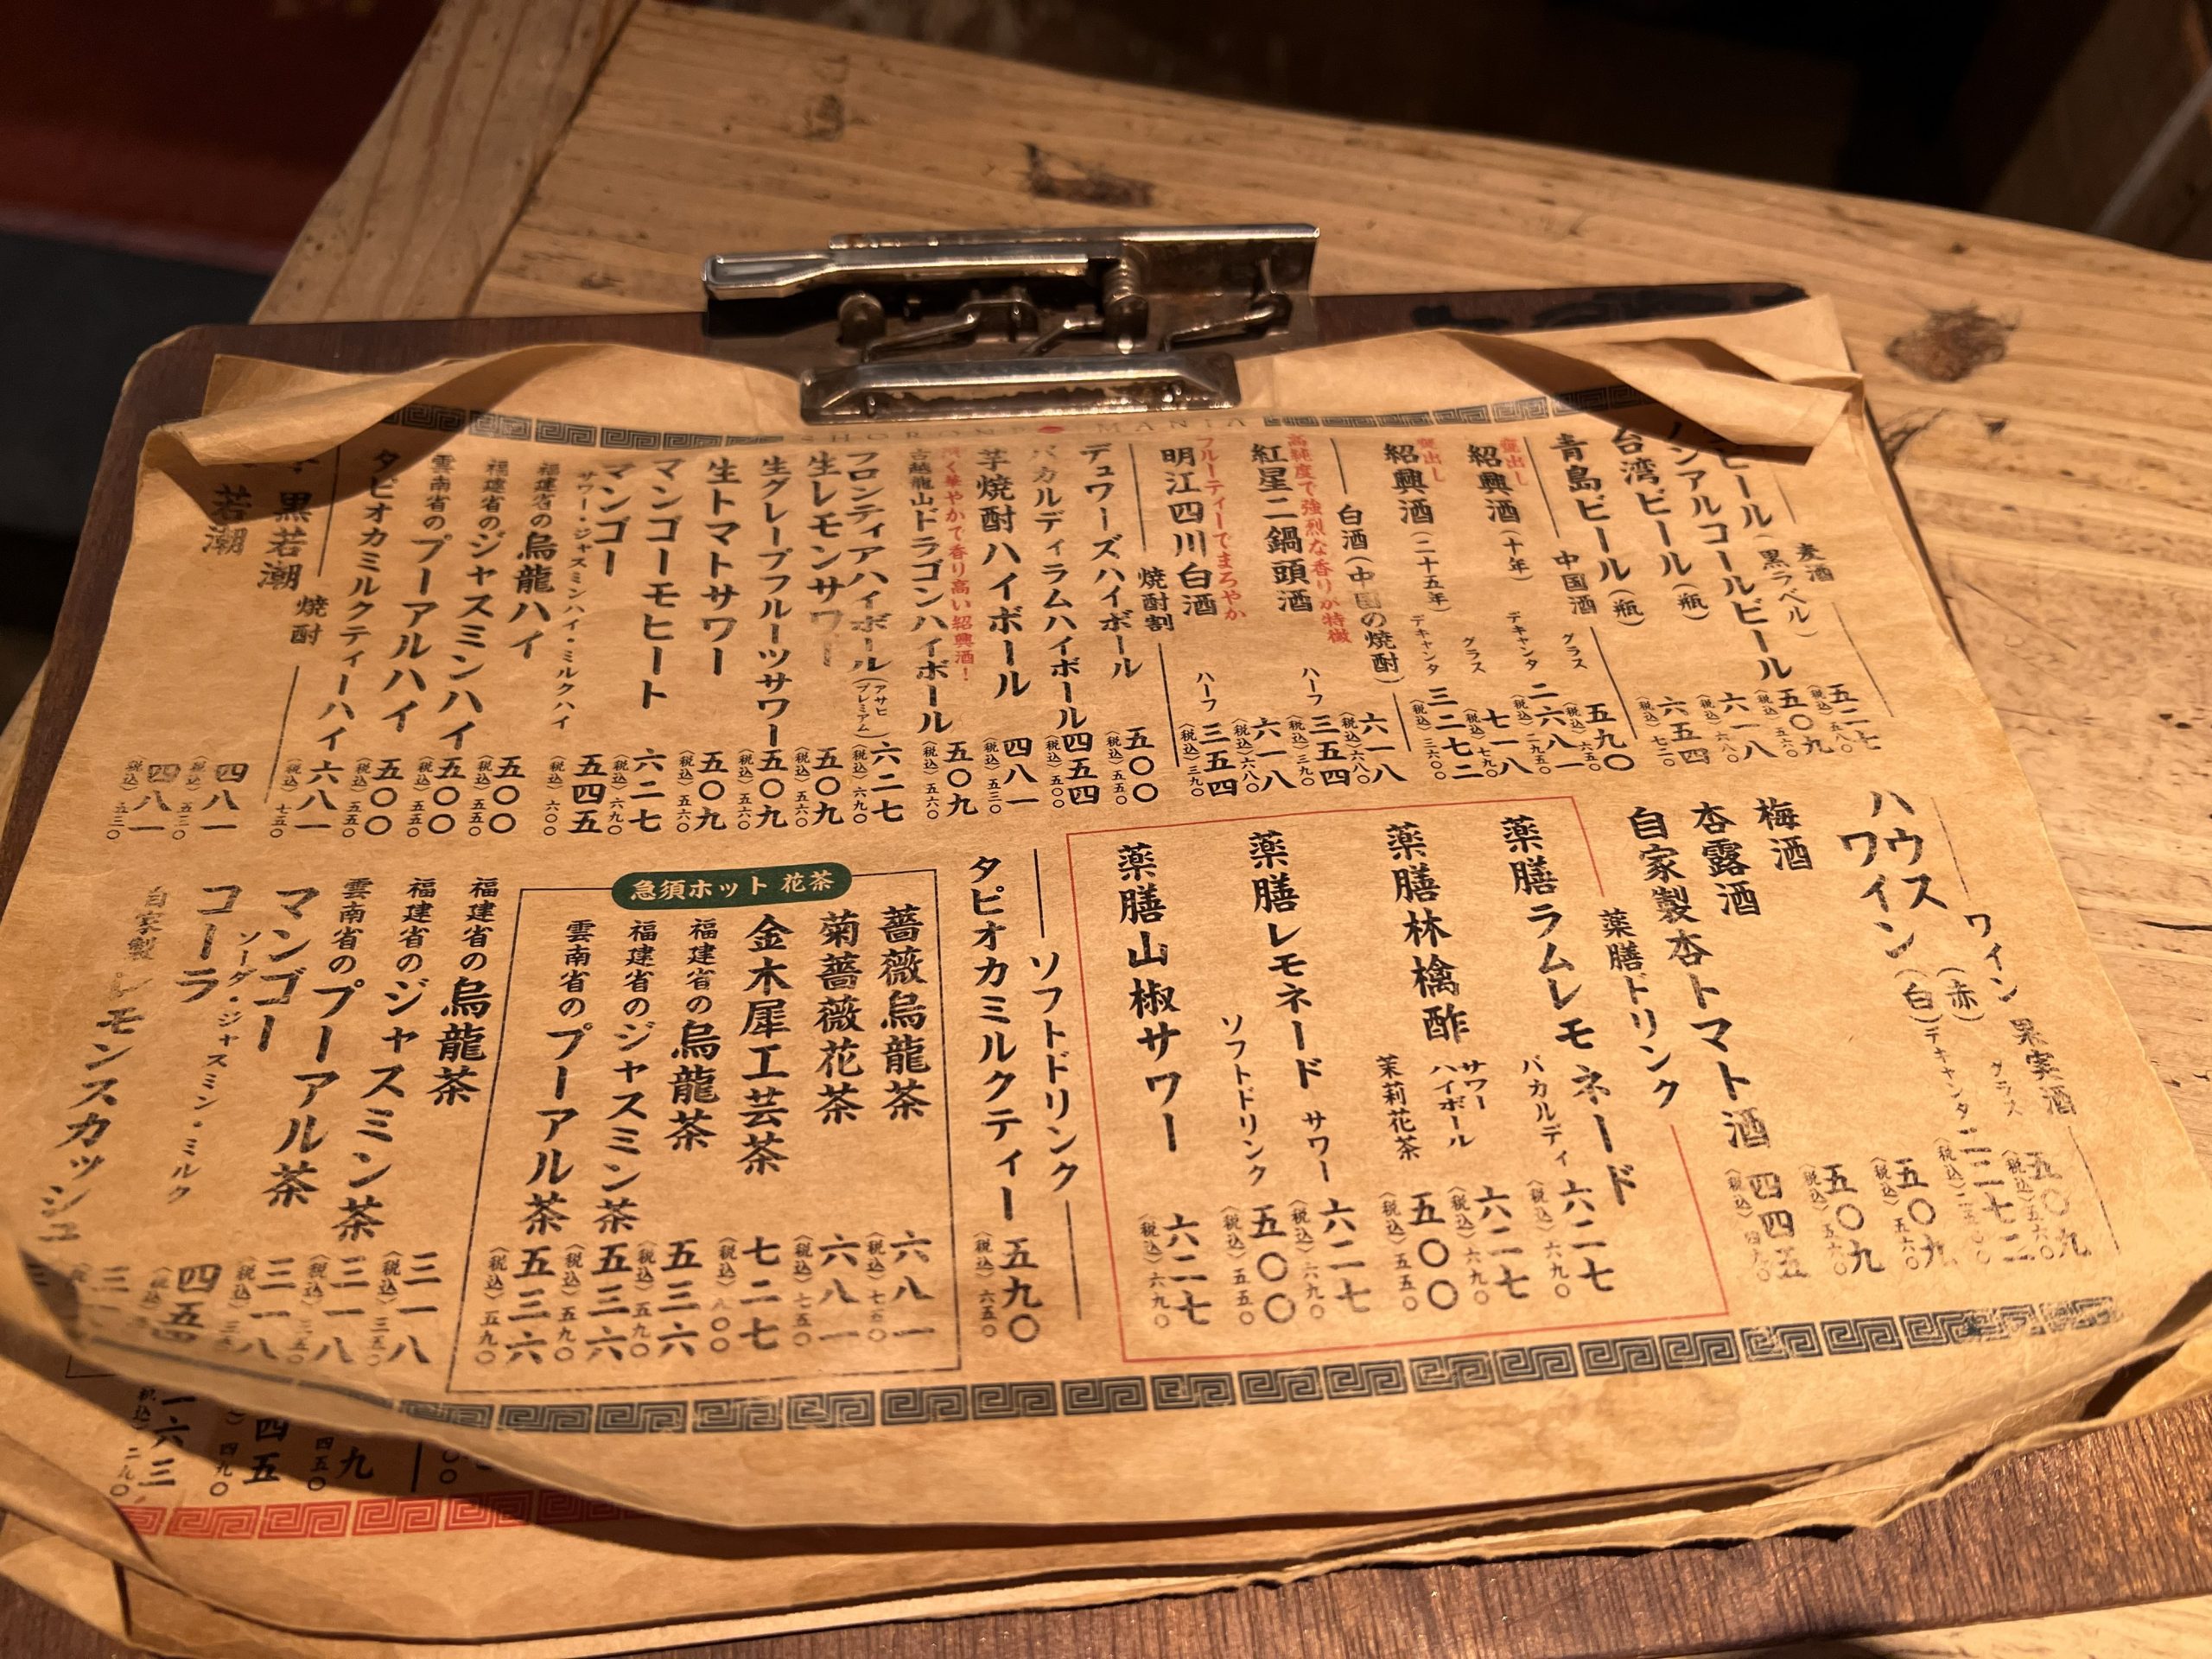 SHORON MANIA
麦酒
ビール(黒ラベル)
五二七
(税込)五八〇
ノンアルコールビール
五〇九
(税込)五六〇
台湾ビール(瓶)
六一八
(税込)六八〇
青島ビール(瓶)
六五四
(税込)七二〇
中国酒
甕出し
紹興酒(十年)
グラス
五九〇
(税込)六五〇
デキャンタ
二六八一
(税込)二九五〇
甕出し
紹興酒(二十五年)
グラス
七一八
(税込)七九〇
デキャンタ
三二七二
(税込)三六〇〇
白酒(中国の焼酎)
高純度で強烈な香りが特徴
紅星二鍋頭酒
六一八
(税込)六八〇
ハーフ
三五四
(税込)三九〇
フルーティーでまろやか
明江四川白酒
六一八
(税込)六八〇
ハーフ
三五四
(税込)三九〇
焼酎割
デュワーズハイボール
五〇〇
(税込)五五〇
バカルディラムハイボール
四五四
(税込)五〇〇
芋焼酎ハイボール
四八一
(税込)五三〇
く華やかで香り高い紹興酒!
古越龍山ドラゴンハイボール
五〇九
(税込)五六〇
フロンティアハイボール(アサヒプレミアム)
六二七
(税込)六九〇
生レモンサワー
五〇九
(税込)五六〇
生グレープフルーツサワー
五〇九
(税込)五六〇
生トマトサワー
五〇九
(税込)五六〇
マンゴーモヒート
六二七
(税込)六九〇
マンゴー
サワー・ジャスミンハイ・ミルクハイ
五四五
(税込)六〇〇
福建省の烏龍ハイ
五〇〇
(税込)五五〇
福建省のジャスミンハイ
五〇〇
(税込)五五〇
雲南省のプーアルハイ
五〇〇
(税込)五五〇
タピオカミルクティーハイ
六八一
(税込)七五〇
焼酎
芋 黒若潮
四八一
(税込)五三〇
若潮
四八一
(税込)五三〇
ワイン 果実酒
ハウスワイン(赤)(白)
グラス
五〇九
(税込)五六〇
デキャンタ
二二七二
(税込)二五〇〇
梅酒
五〇九
(税込)五六〇
杏露酒
五〇九
(税込)五六〇
自家製杏トマト酒
四四五
(税込)四九〇
薬膳ドリンク
薬膳ラムレモネード
バカルディ
六二七
(税込)六九〇
薬膳林檎酢
サワー
ハイボール
六二七
(税込)六九〇
茉莉花茶
五〇〇
(税込)五五〇
薬膳レモネード
サワー
六二七
(税込)六九〇
ソフトドリンク
五〇〇
(税込)五五〇
薬膳山椒サワー
六二七
(税込)六九〇
ソフトドリンク
タピオカミルクティー
五九〇
(税込)六五〇
急須ホット 花茶
薔薇烏龍茶
六八一
(税込)七五〇
菊薔薇花茶
六八一
(税込)七五〇
金木犀工芸茶
七二七
(税込)八〇〇
福建省の烏龍茶
五三六
(税込)五九〇
福建省のジャスミン茶
五三六
(税込)五九〇
雲南省のプーアル茶
五三六
(税込)五九〇
福建省の烏龍茶
三一八
(税込)三五〇
福建省のジャスミン茶
三一八
(税込)三五〇
雲南省のプーアル茶
三一八
(税込)三五〇
マンゴー
ソーダ・ジャスミン・ミルク
四五四
コーラ
自家製レモンスカッシュ
九
四五〇
四五
四九〇
一六三
(税込)二九〇